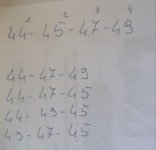 1 2 3 4
44-45-47-49
44-47-49
44-47-45
44-49-45
49-47-45